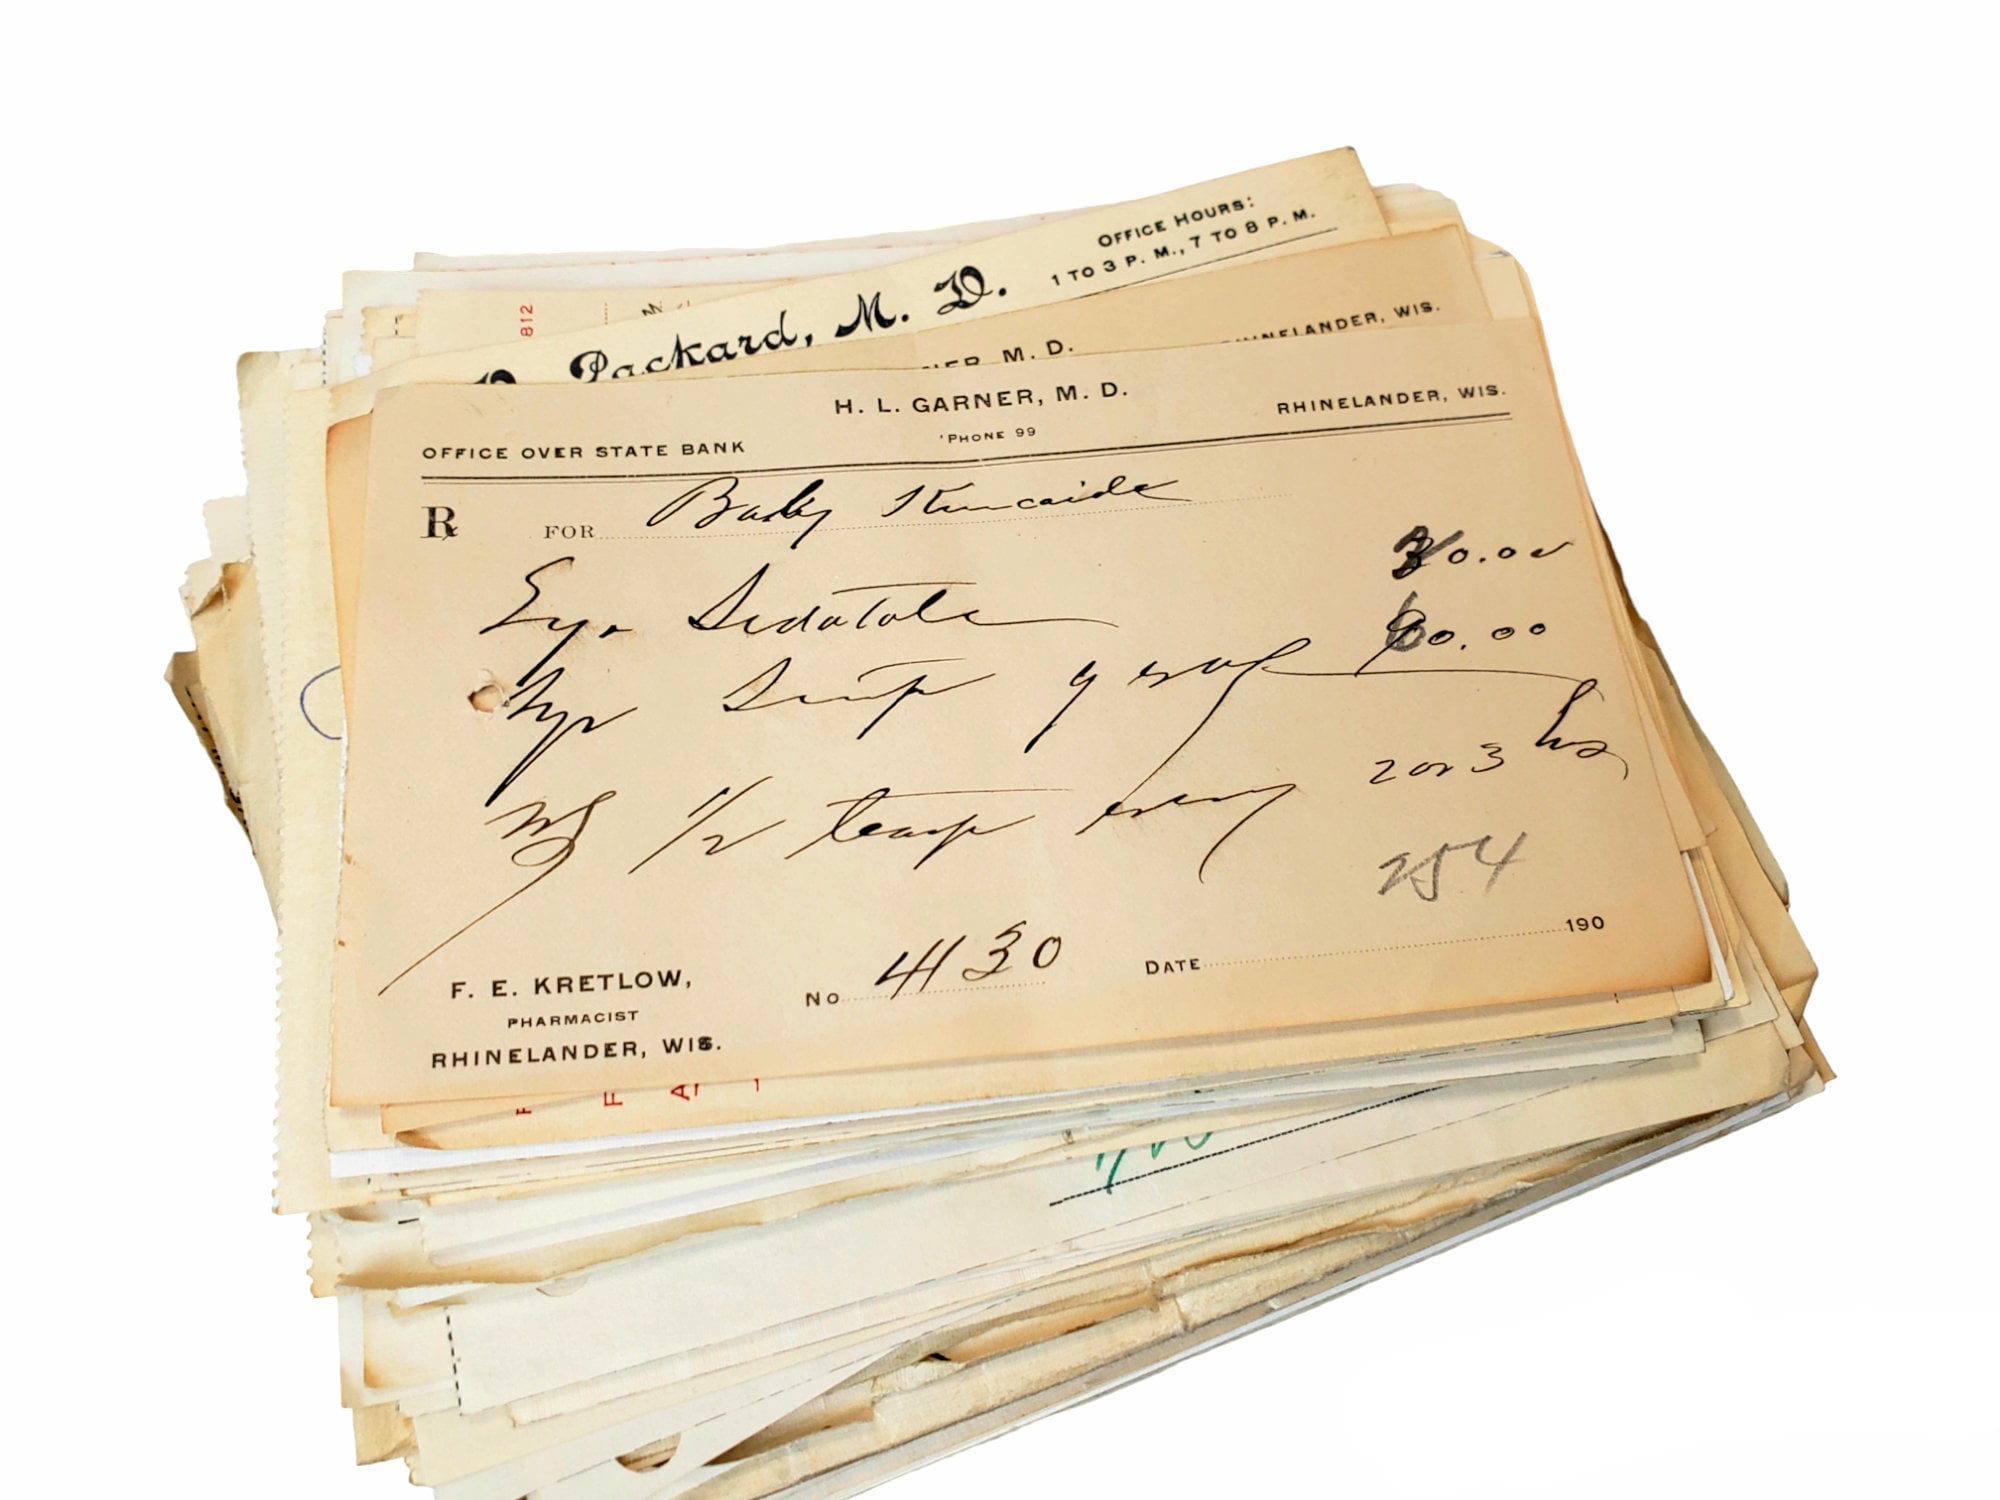 812
OFFICE HOURS:
1 TO 3 P. M., 7 TO 8 P. M.
Packard, M. D.
RHINELANDER, WIS.
M. D.
H. L. GARNER, M. D.
OFFICE OVER STATE BANK
'PHONE 99
RHINELANDER, WIS.
℞ FOR Baby Kincaide
Sedatole 30.00
60.00
1/2 teasp every 2 or 3 hrs
254
F. E. KRETLOW,
PHARMACIST
RHINELANDER, WIS.
No 4130
DATE 190